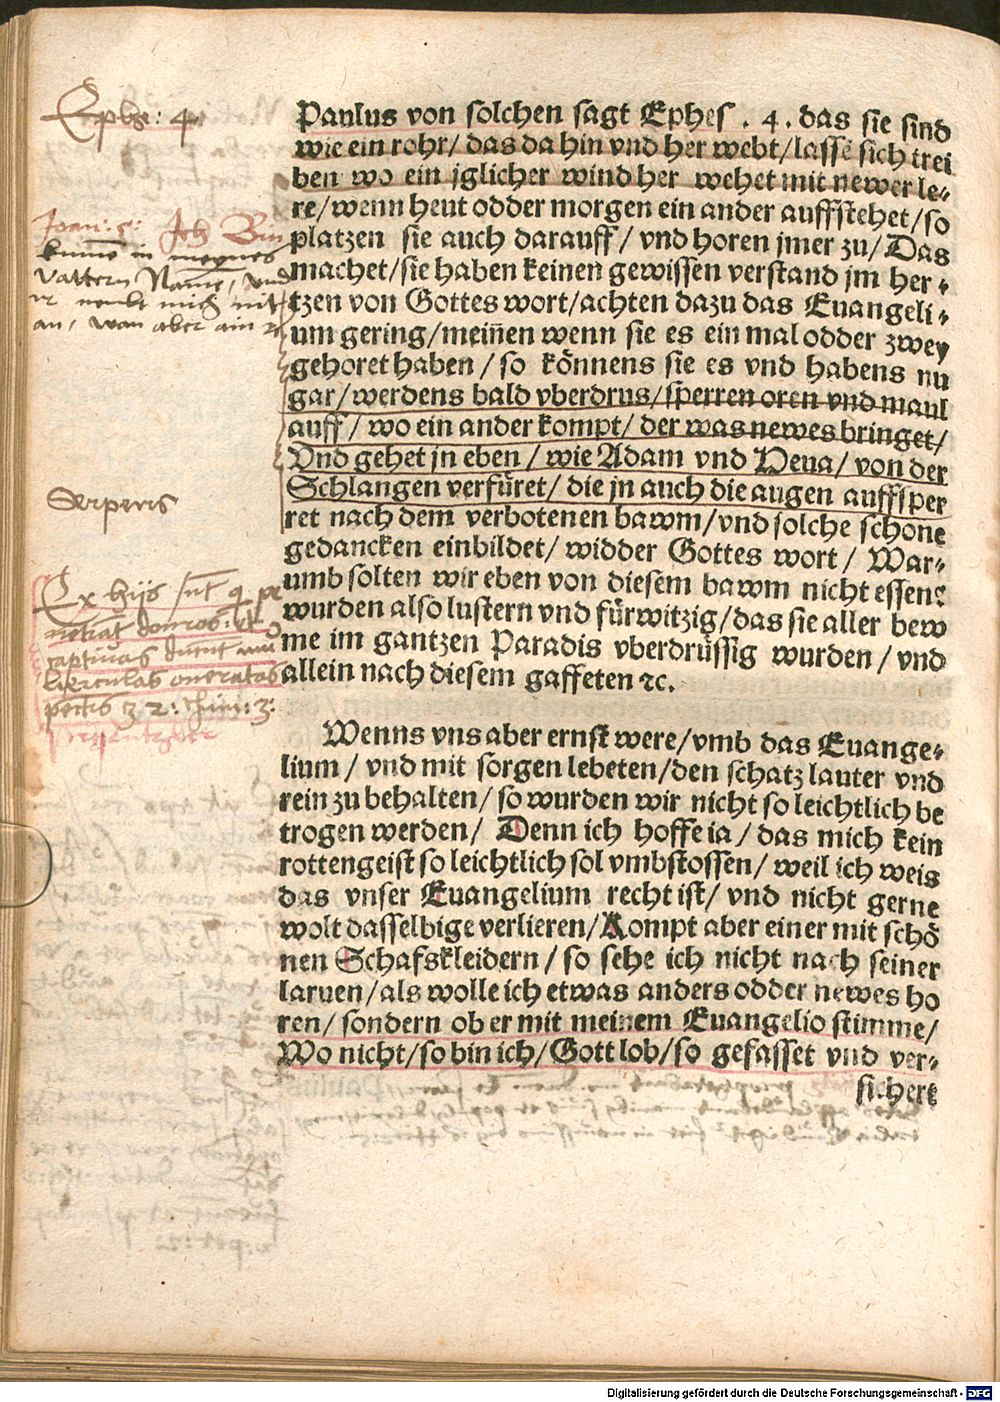 Ephe: 4.
Paulus von solchen sagt Ephes. 4. das sie sind
wie ein rohr/ das da hin vnd her webt/ lasse sich trei
ben wo ein jglicher wind her wehet mit newer le⸗
re/ wenn heut odder morgen ein ander auffstehet/ so
platzen sie auch darauff/ vnd horen jmer zu/ Das
machet/ sie haben keinen gewissen verstand jm her⸗
tzen von Gottes wort/ achten dazu das Euangeli⸗
um gering/ meinẽn wenn sie es ein mal odder zwey
gehoret haben/ so kônnens sie es vnd habens nu
gar/ werdens bald vberdrus/ sperren oren vnd maul
auff/ wo ein ander kompt/ der was newes bringet/
Vnd gehet jn eben/ wie Adam vnd Heua/ von der
Schlangen verfûret/ die jn auch die augen auffsper
ret nach dem verbotenen bawm/ vnd solche schone
gedancken einbildet/ widder Gottes wort/ War⸗
umb solten wir eben von diesem bawm nicht essen?
wurden also lustern vnd fûrwitzig/ das sie aller bew
me im gantzen Paradis vberdrûssig wurden/ vnd
allein nach diesem gaffeten ꝛc.
Joan: 5: Ich Bin
kume in meynes
vattern Name, vnd
ir nembt mich nit
an, wan aber ain
Ex hijs sũt q̃ pe
netrãt domos: et
captiuas ducũt mu
lierculas oneratas
pectis 2: thim: 3:
Wenns vns aber ernst were/ vmb das Euange⸗
lium/ vnd mit sorgen lebeten/ den schatz lauter vnd
rein zu behalten/ so wurden wir nicht so leichtlich be
trogen werden/ Denn ich hoffe ia/ das mich kein
rottengeist so leichtlich sol vmbstossen/ weil ich weis
das vnser Euangelium recht ist/ vnd nicht gerne
wolt dasselbige verlieren/ Kompt aber einer mit schô
nen Schafskleidern/ so sehe ich nicht nach seiner
laruen/ als wolle ich etwas anders odder newes ho
ren/ sondern ob er mit meinem Euangelio stimme/
Wo nicht/ so bin ich/ Gott lob/ so gefasset vnd ver⸗
sichert
Digitalisierung gefördert durch die Deutsche Forschungsgemeinschaft - DFG